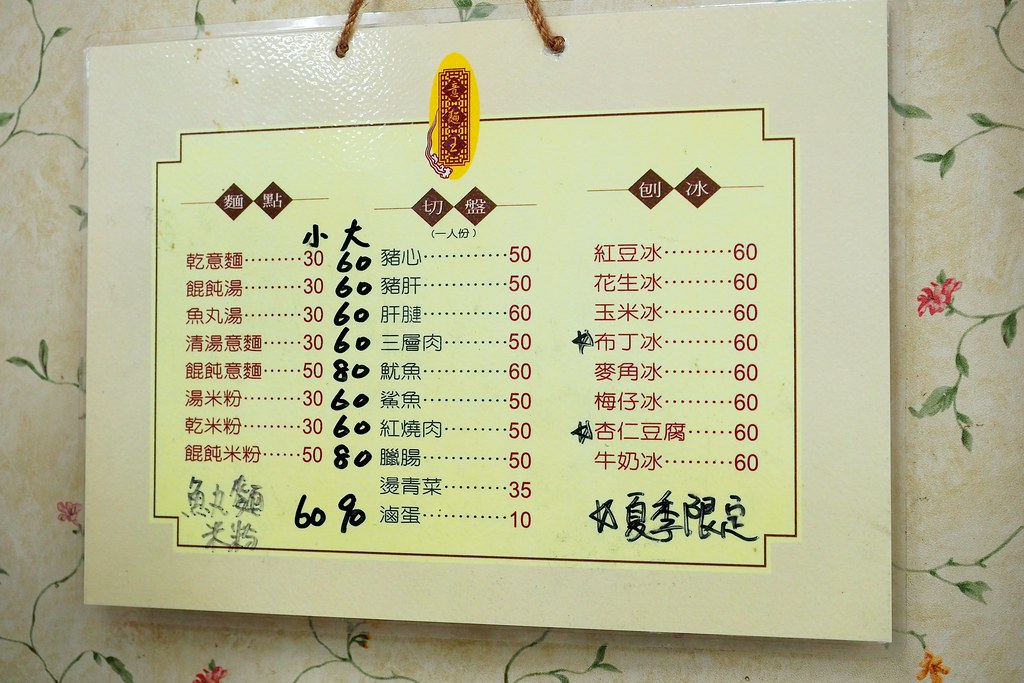 意麵王
麵點
小 大
乾意麵………30 60
餛飩湯………30 60
魚丸湯………30 60
清湯意麵……30 60
餛飩意麵……50 80
湯米粉………30 60
乾米粉………30 60
餛飩米粉……50 80
魚丸麵 60 90
米粉
切盤
(一人份)
豬心…………50
豬肝…………50
肝腱…………60
三層肉………50
魷魚…………60
鯊魚…………50
紅燒肉………50
臘腸…………50
燙青菜………35
滷蛋…………10
刨冰
紅豆冰………60
花生冰………60
玉米冰………60
布丁冰………60
麥角冰………60
梅仔冰………60
杏仁豆腐……60
牛奶冰………60
夏季限定